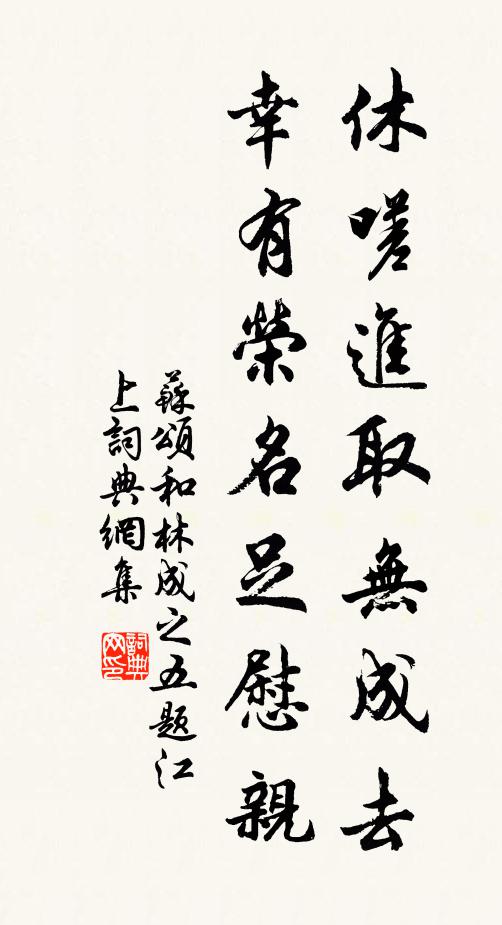 休嗟進取無成去
幸有榮名足慰親
蘇頌和林成之五題江
上詞典網集
詞典网印